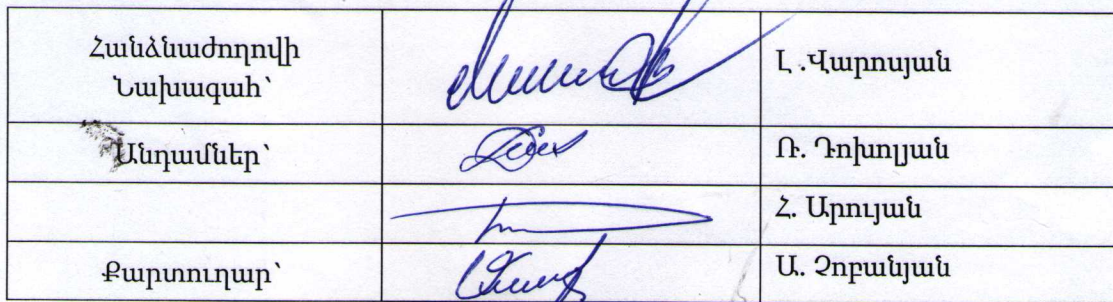 Հանձնաժողովի
Նախագահ՝
Լ .Վարոսյան
Անդամներ՝
Ռ. Դոխոլյան
Հ. Արույան
Քարտուղար՝
Ա. Չոբանյան